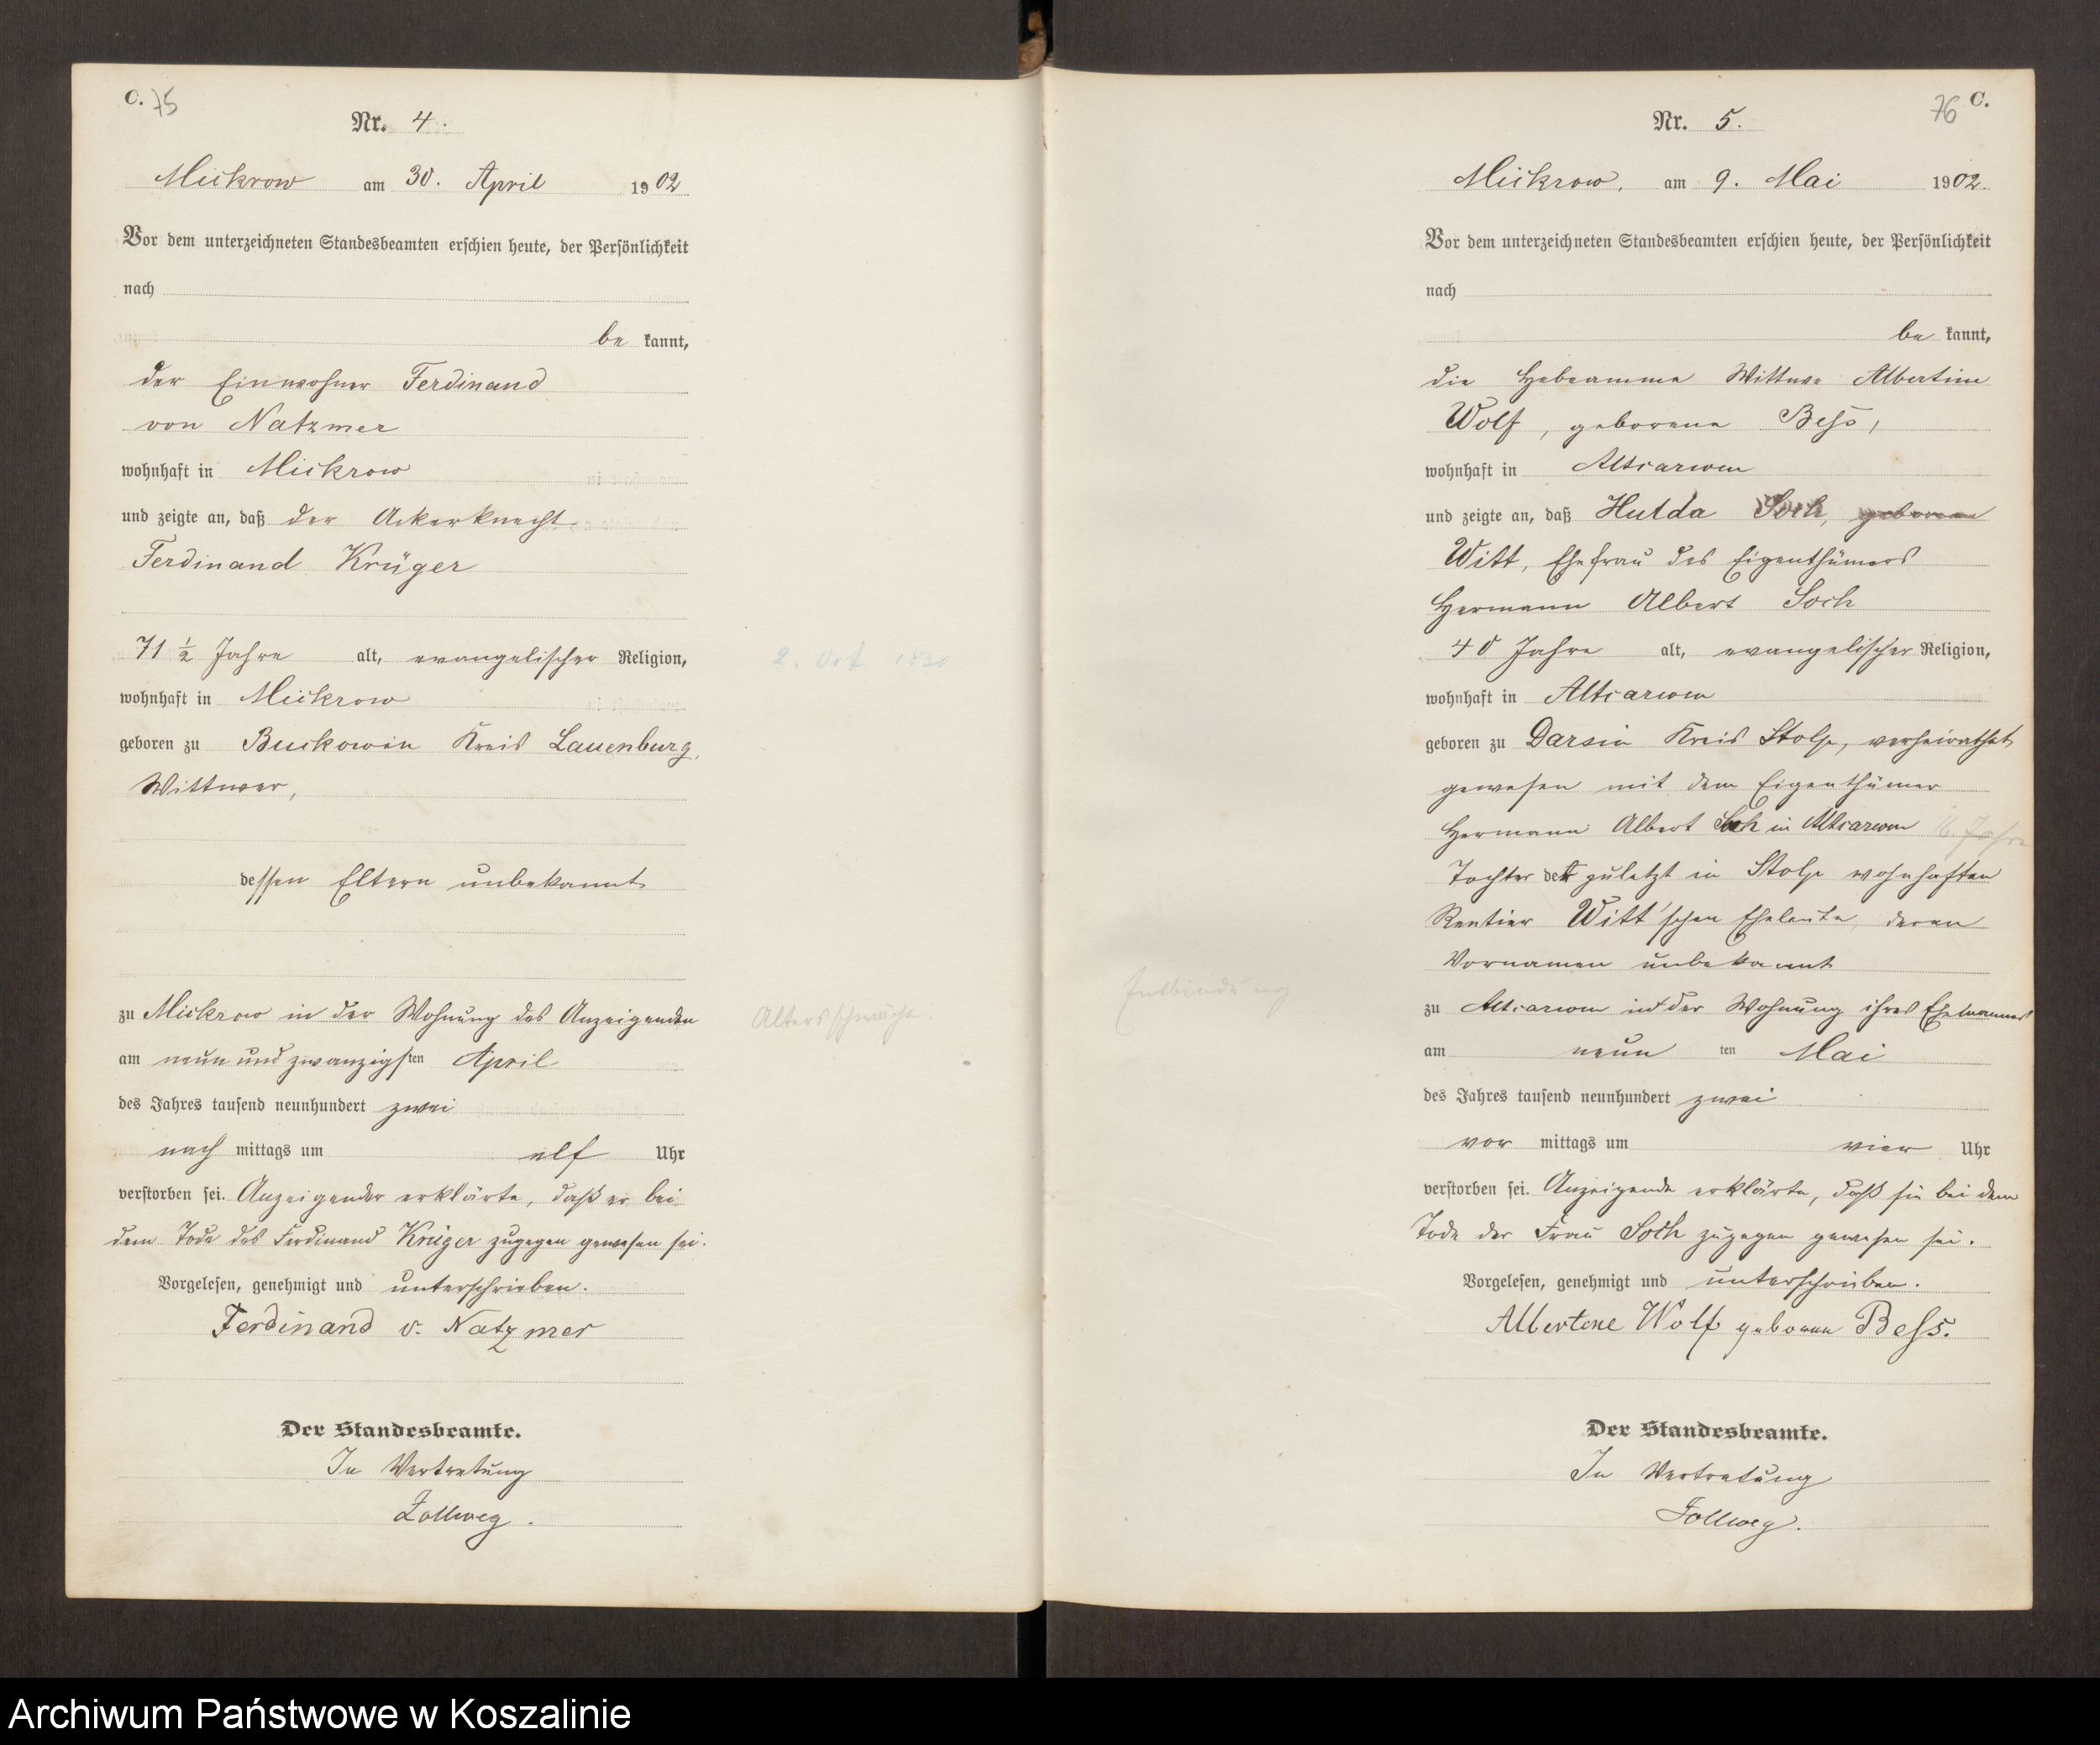 C. 75
Nr. 4.
Mickrow am 30. April 1902
Vor dem unterzeichneten Standesbeamten erschien heute, der Persönlichkeit
nach
be kannt,
der Einwohner Ferdinand
von Natzmer
wohnhaft in Mickrow
und zeigte an, daß der Ackerknecht
Ferdinand Krüger
71 ½ Jahre alt, evangelischer Religion,
2. Oct 1830
wohnhaft in Mickrow
geboren zu Buckowin Kreis Lauenburg,
Wittwer,
dessen Eltern unbekannt
zu Mickrow in der Wohnung des Anzeigenden
Altersschwäche.
am neun und zwanzigsten April
des Jahres tausend neunhundert zwei
nach mittags um elf Uhr
verstorben sei. Anzeigender erklärte, daß er bei
dem Tode des Ferdinand Krüger zugegen gewesen sei.
Vorgelesen, genehmigt und unterschrieben.
Ferdinand v. Natzmer
Der Standesbeamte.
In Vertretung
Zollweg.
76 C.
Nr. 5.
Mickrow, am 9. Mai 1902
Vor dem unterzeichneten Standesbeamten erschien heute, der Persönlichkeit
nach
be kannt,
die Hebeamme Wittwe Albertine
Wolf, geborene Bess,
wohnhaft in Altsarwen
und zeigte an, daß Hulda Soch, geborene
Witt, Ehefrau des Eigenthümers
Hermann Albert Soch
40 Jahre alt, evangelischer Religion,
wohnhaft in Altsarwen
geboren zu Darsin Kreis Stolp, verheirathet
gewesen mit dem Eigenthümer
Hermann Albert Soch in Altsarwen Jahre
Tochter der zuletzt in Stolp wohnhaften
Rentier Witt'schen Eheleute, deren
Vornamen unbekannt
Entbindung
zu Altsarwen in der Wohnung ihres Ehemannes
am neun ten Mai
des Jahres tausend neunhundert zwei
vor mittags um vier Uhr
verstorben sei. Anzeigende erklärte, daß sie bei dem
Tode der Frau Soch zugegen gewesen sei.
Vorgelesen, genehmigt und unterschrieben.
Albertine Wolf geboren Bess.
Der Standesbeamte.
In Vertretung
Zollweg.
Archiwum Państwowe w Koszalinie